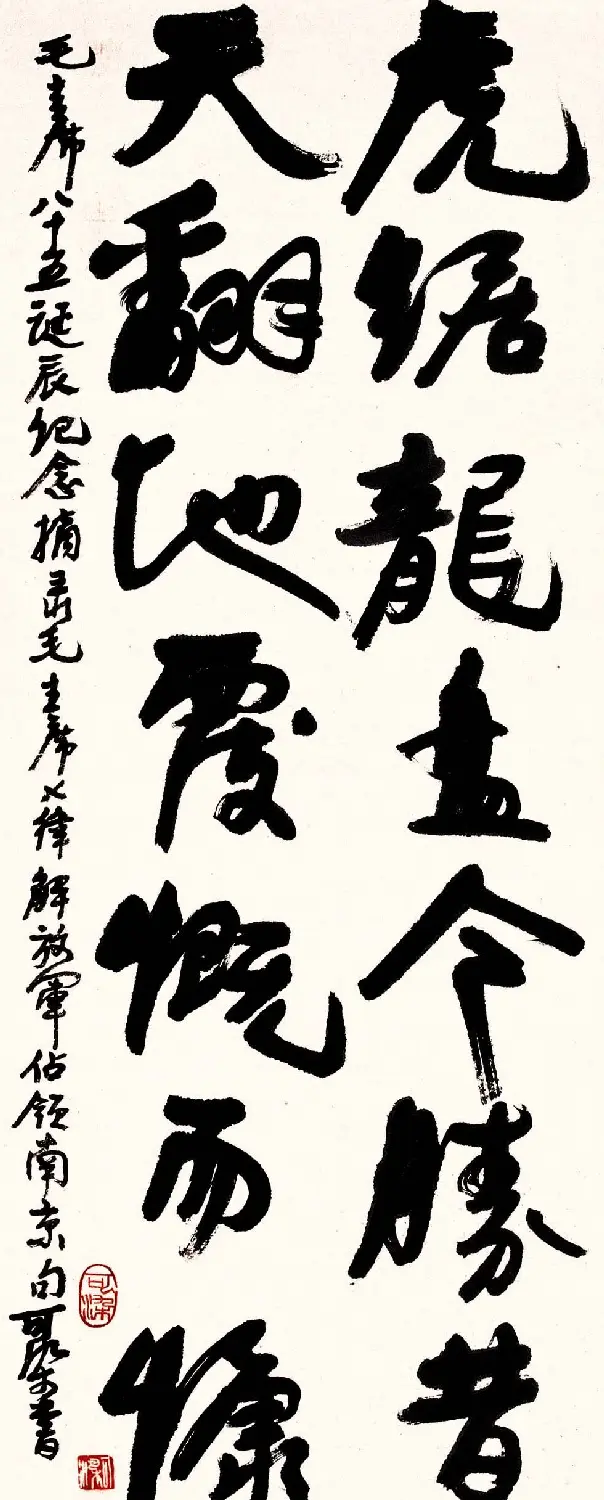 虎踞龍盘今勝昔
天翻地覆慨而慷
毛主席八十五诞辰纪念摘录毛主席七律解放軍佔领南京句可染书
可染